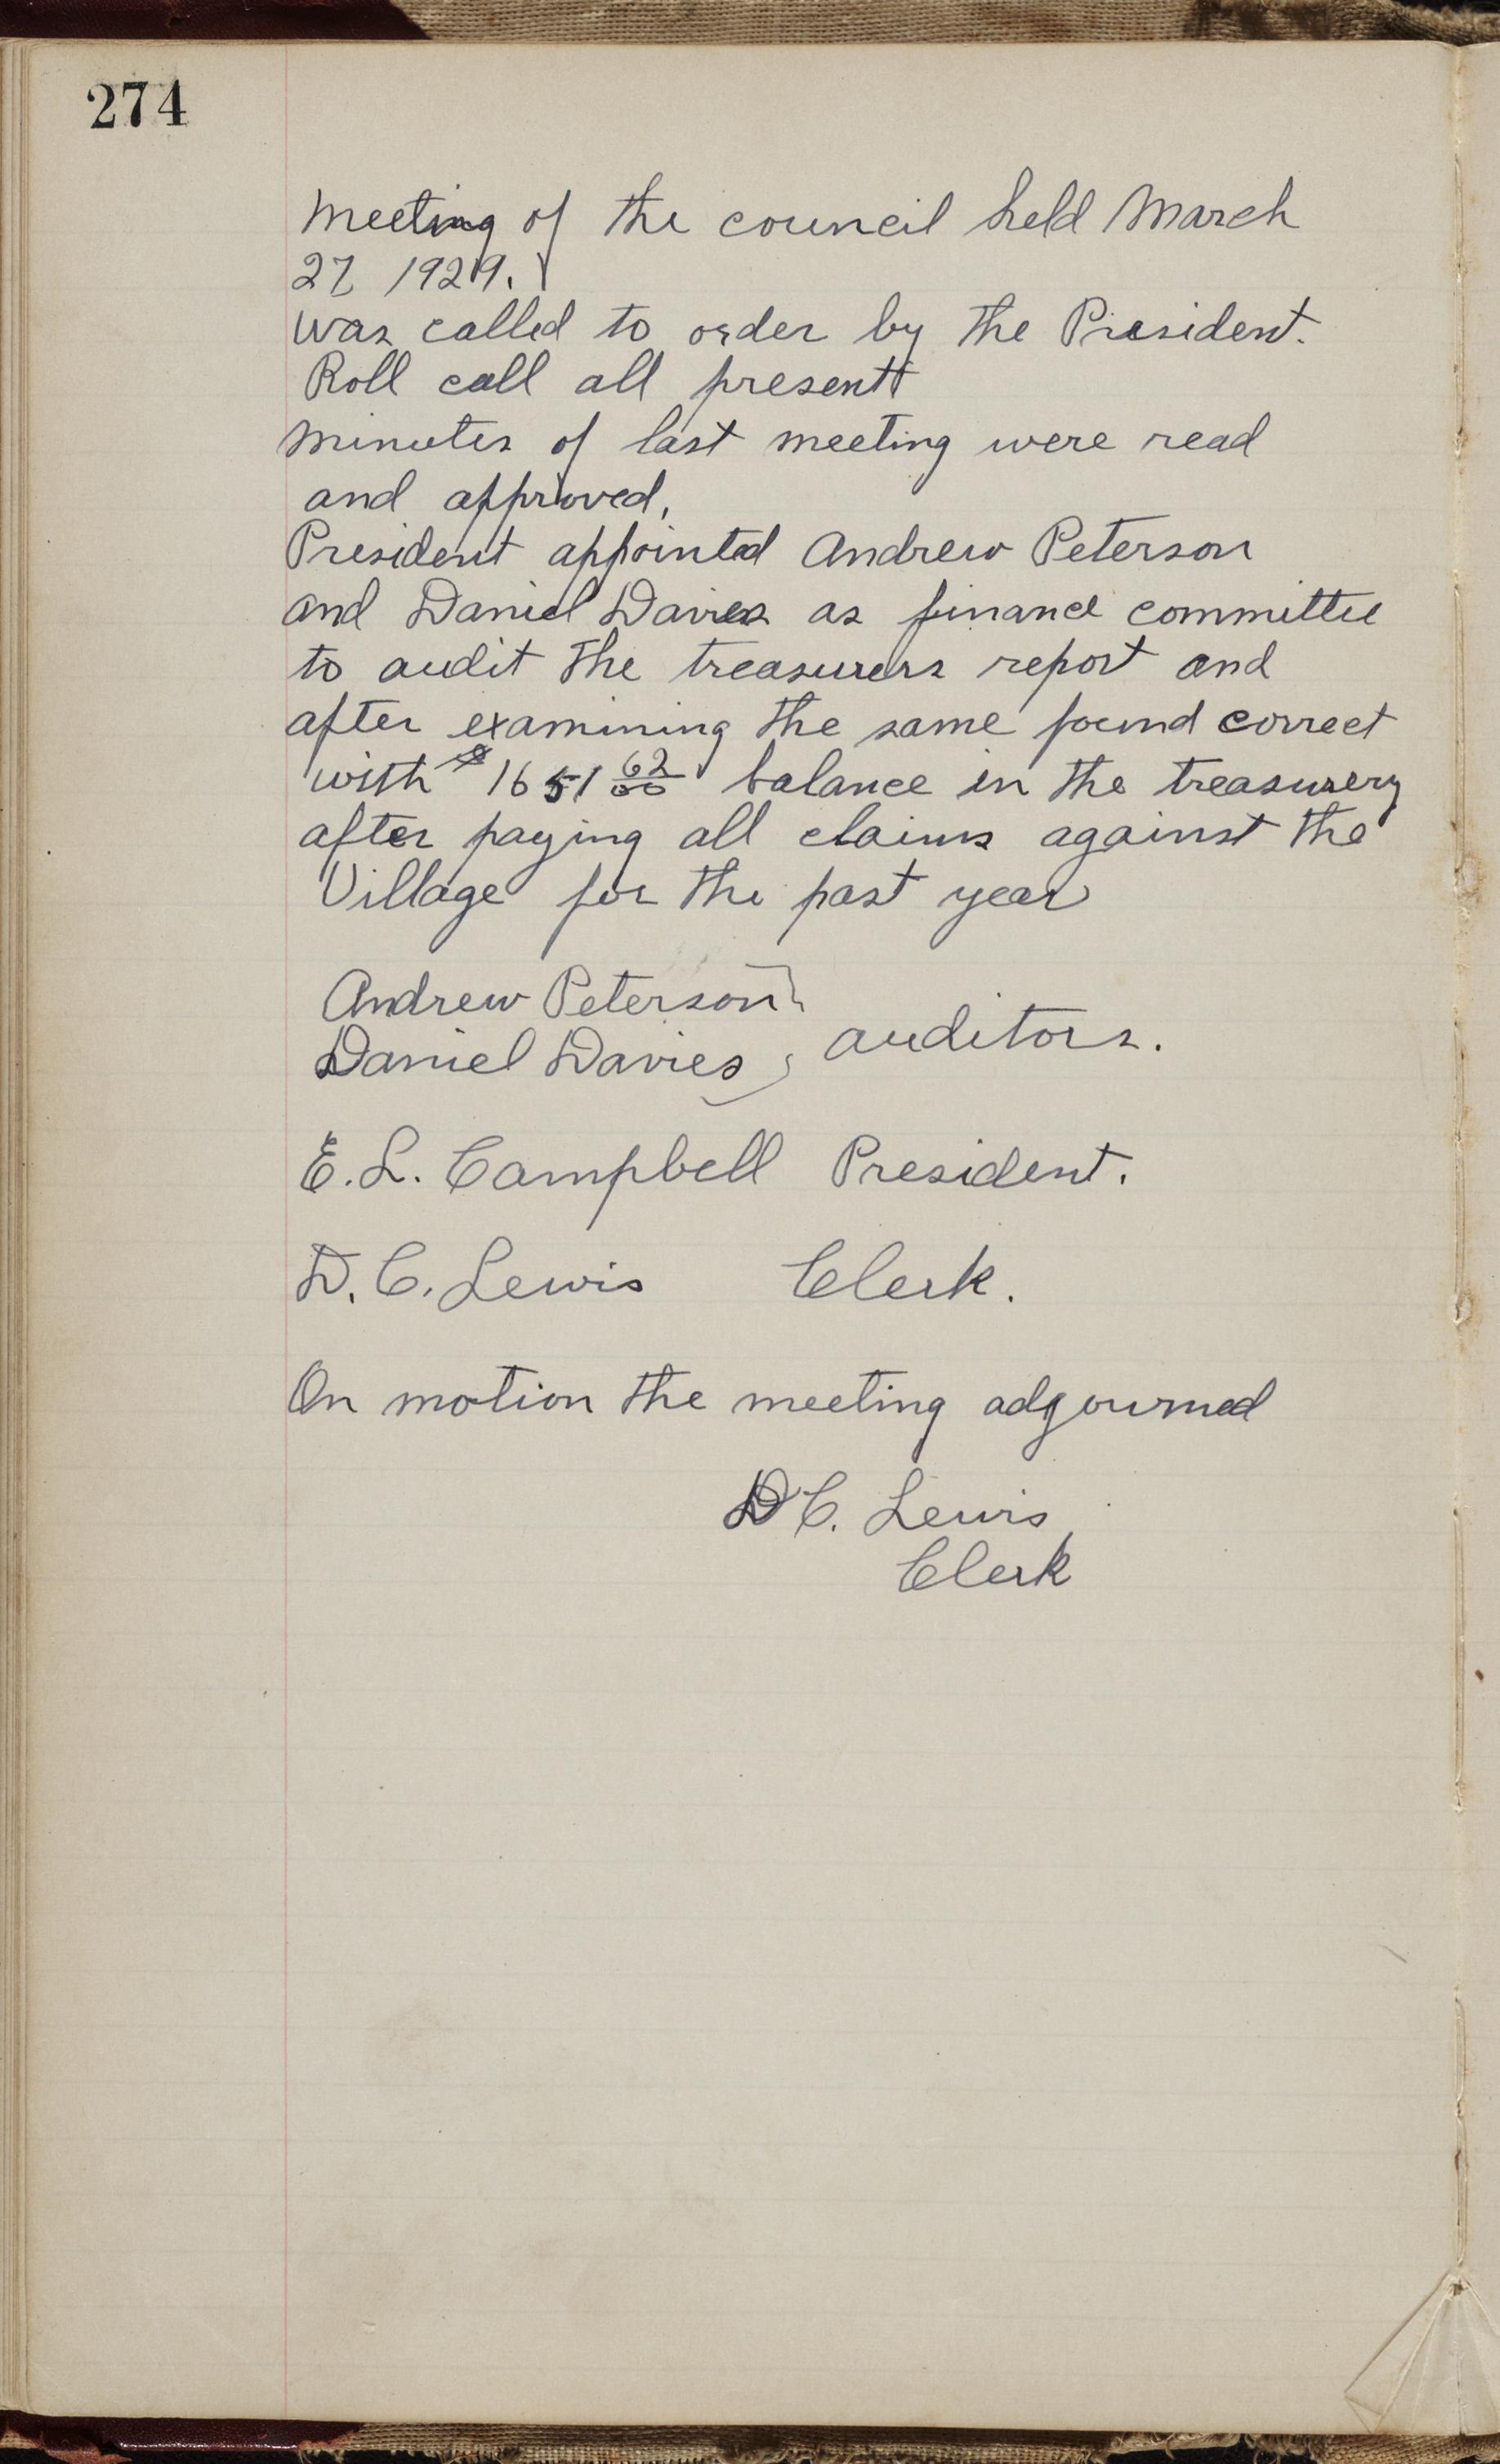 274
Meeting of the council held March
27 1929.
was called to order by the President.
Roll call all present
minutes of last meeting were read
and approved,
President appointed Andrew Peterson
and Daniel Davies as finance committee
to audit the treasurers report and
after examining the same found correct
with $ 1651 62/00 balance in the treasurery
after paying all claims against the
Village for the past year
Andrew Peterson
Daniel Davies } auditors.
E. L. Campbell President.
D. C. Lewis Clerk.
On motion the meeting adgourned
D C. Lewis
Clerk